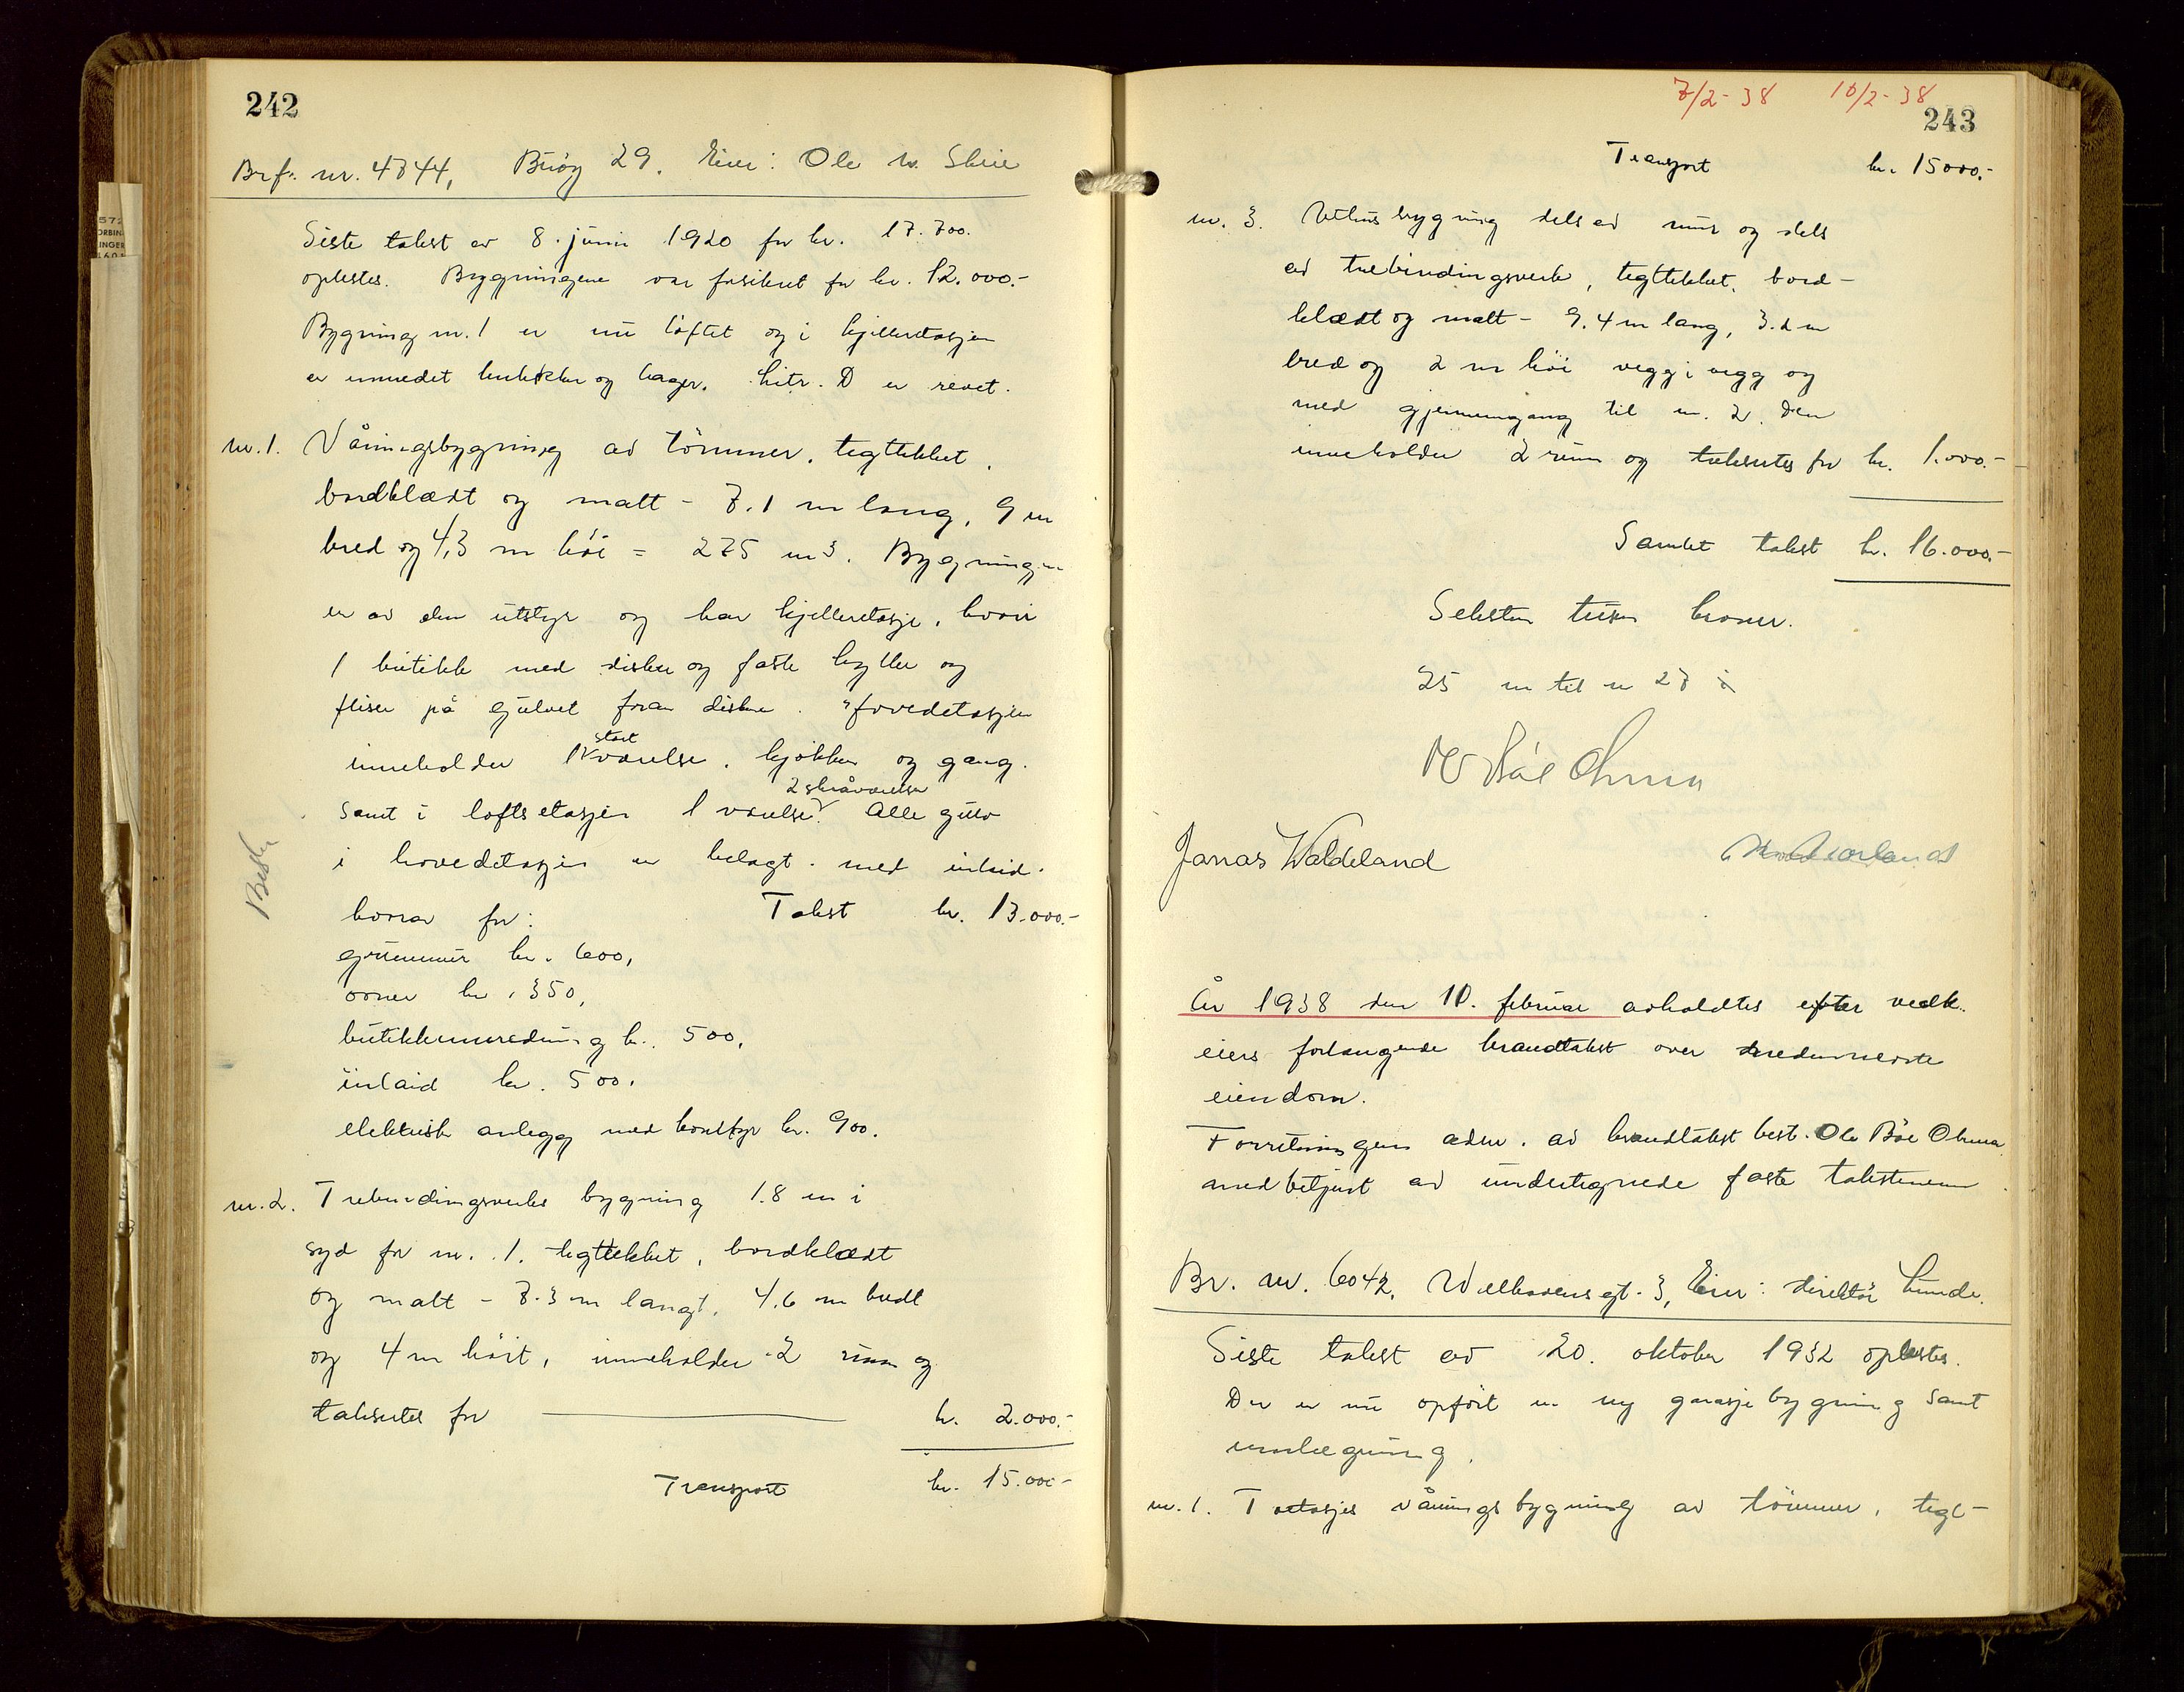 242
Brf. nr. 4744, Buøy 29. Eier: Ole W. Skeie
Siste takst av 8. juni 1920 for kr. 17.700.
oplestes. Bygningene var forsikret for kr. 12.000.-
Bygning nr. 1 er nu løftet og i kjelleretasjen
er innredet butikker og lager. Litr. D er revet.
nr. 1. Våningsbygning av tømmer, tegltekket,
bordklædt og malt - 7.1 m lang, 9 m
bred og 4,3 m høi = 275 m3. Bygningen
er av alm utstyr og har kjelleretasje, hvori
1 butikk med diske og faste hyller og
fliser på gulvet foran disken. Hovedetasjen
inneholder 1 stort værelse, kjøkken og gang.
samt i loftsetasjen 1 værelse 2 skråværelser Alle gulv
i hovedetasjen er belagt med inlaid.
hvorav for: Takst kr. 13.000.-
grunnmur kr. 600,
ovner kr. 350,
butikkinnredning kr. 500,
inlaid kr. 500.
elektrisk anlegg med komfyr kr. 900.
nr. 2. Trebindingsverks bygning 1.8 m i
syd for nr. 1. tegltekket, bordklædt
og malt - 7.3 m langt, 4.6 m bredt
og 4 m høit, inneholder 2 rum og
takseres for kr. 2.000.-
Transport kr. 15.000-
7/2-38 10/2-38
243
Transport kr. 15000.-
nr. 3. Uthusbygning dels av mur og dels
av trebindingsverk, tegltekket, bord-
klædt og malt - 9.4 m lang, 3.2 m
bred og 2 m høi vegg i vegg og
med gjennemgang til nr. 2. Den
inneholder 2 rum og takseres for kr. 1.000.-
Samlet takst kr. 16.000.-
Seksten tusen kroner.
25 m til nr 27
Jonas Waldeland
År 1938 den 10. februar avholdtes efter vedk.
eiers forlangende brandtakst over nedennevnte
eiendom.
Forretningen adm. av brandtakst best. Ole Bøe Ohma
med betjent av undertegnede faste takstmenn.
Br. nr. 6042. Welhavensgt. 3, Eier: direktør Lunde.
Siste takst av 20. oktober 1932 oplestes.
Der er nu opført en ny garasjebygning samt
innhegning.
nr. 1. Toetasjes våningsbygning av tømmer, tegl-